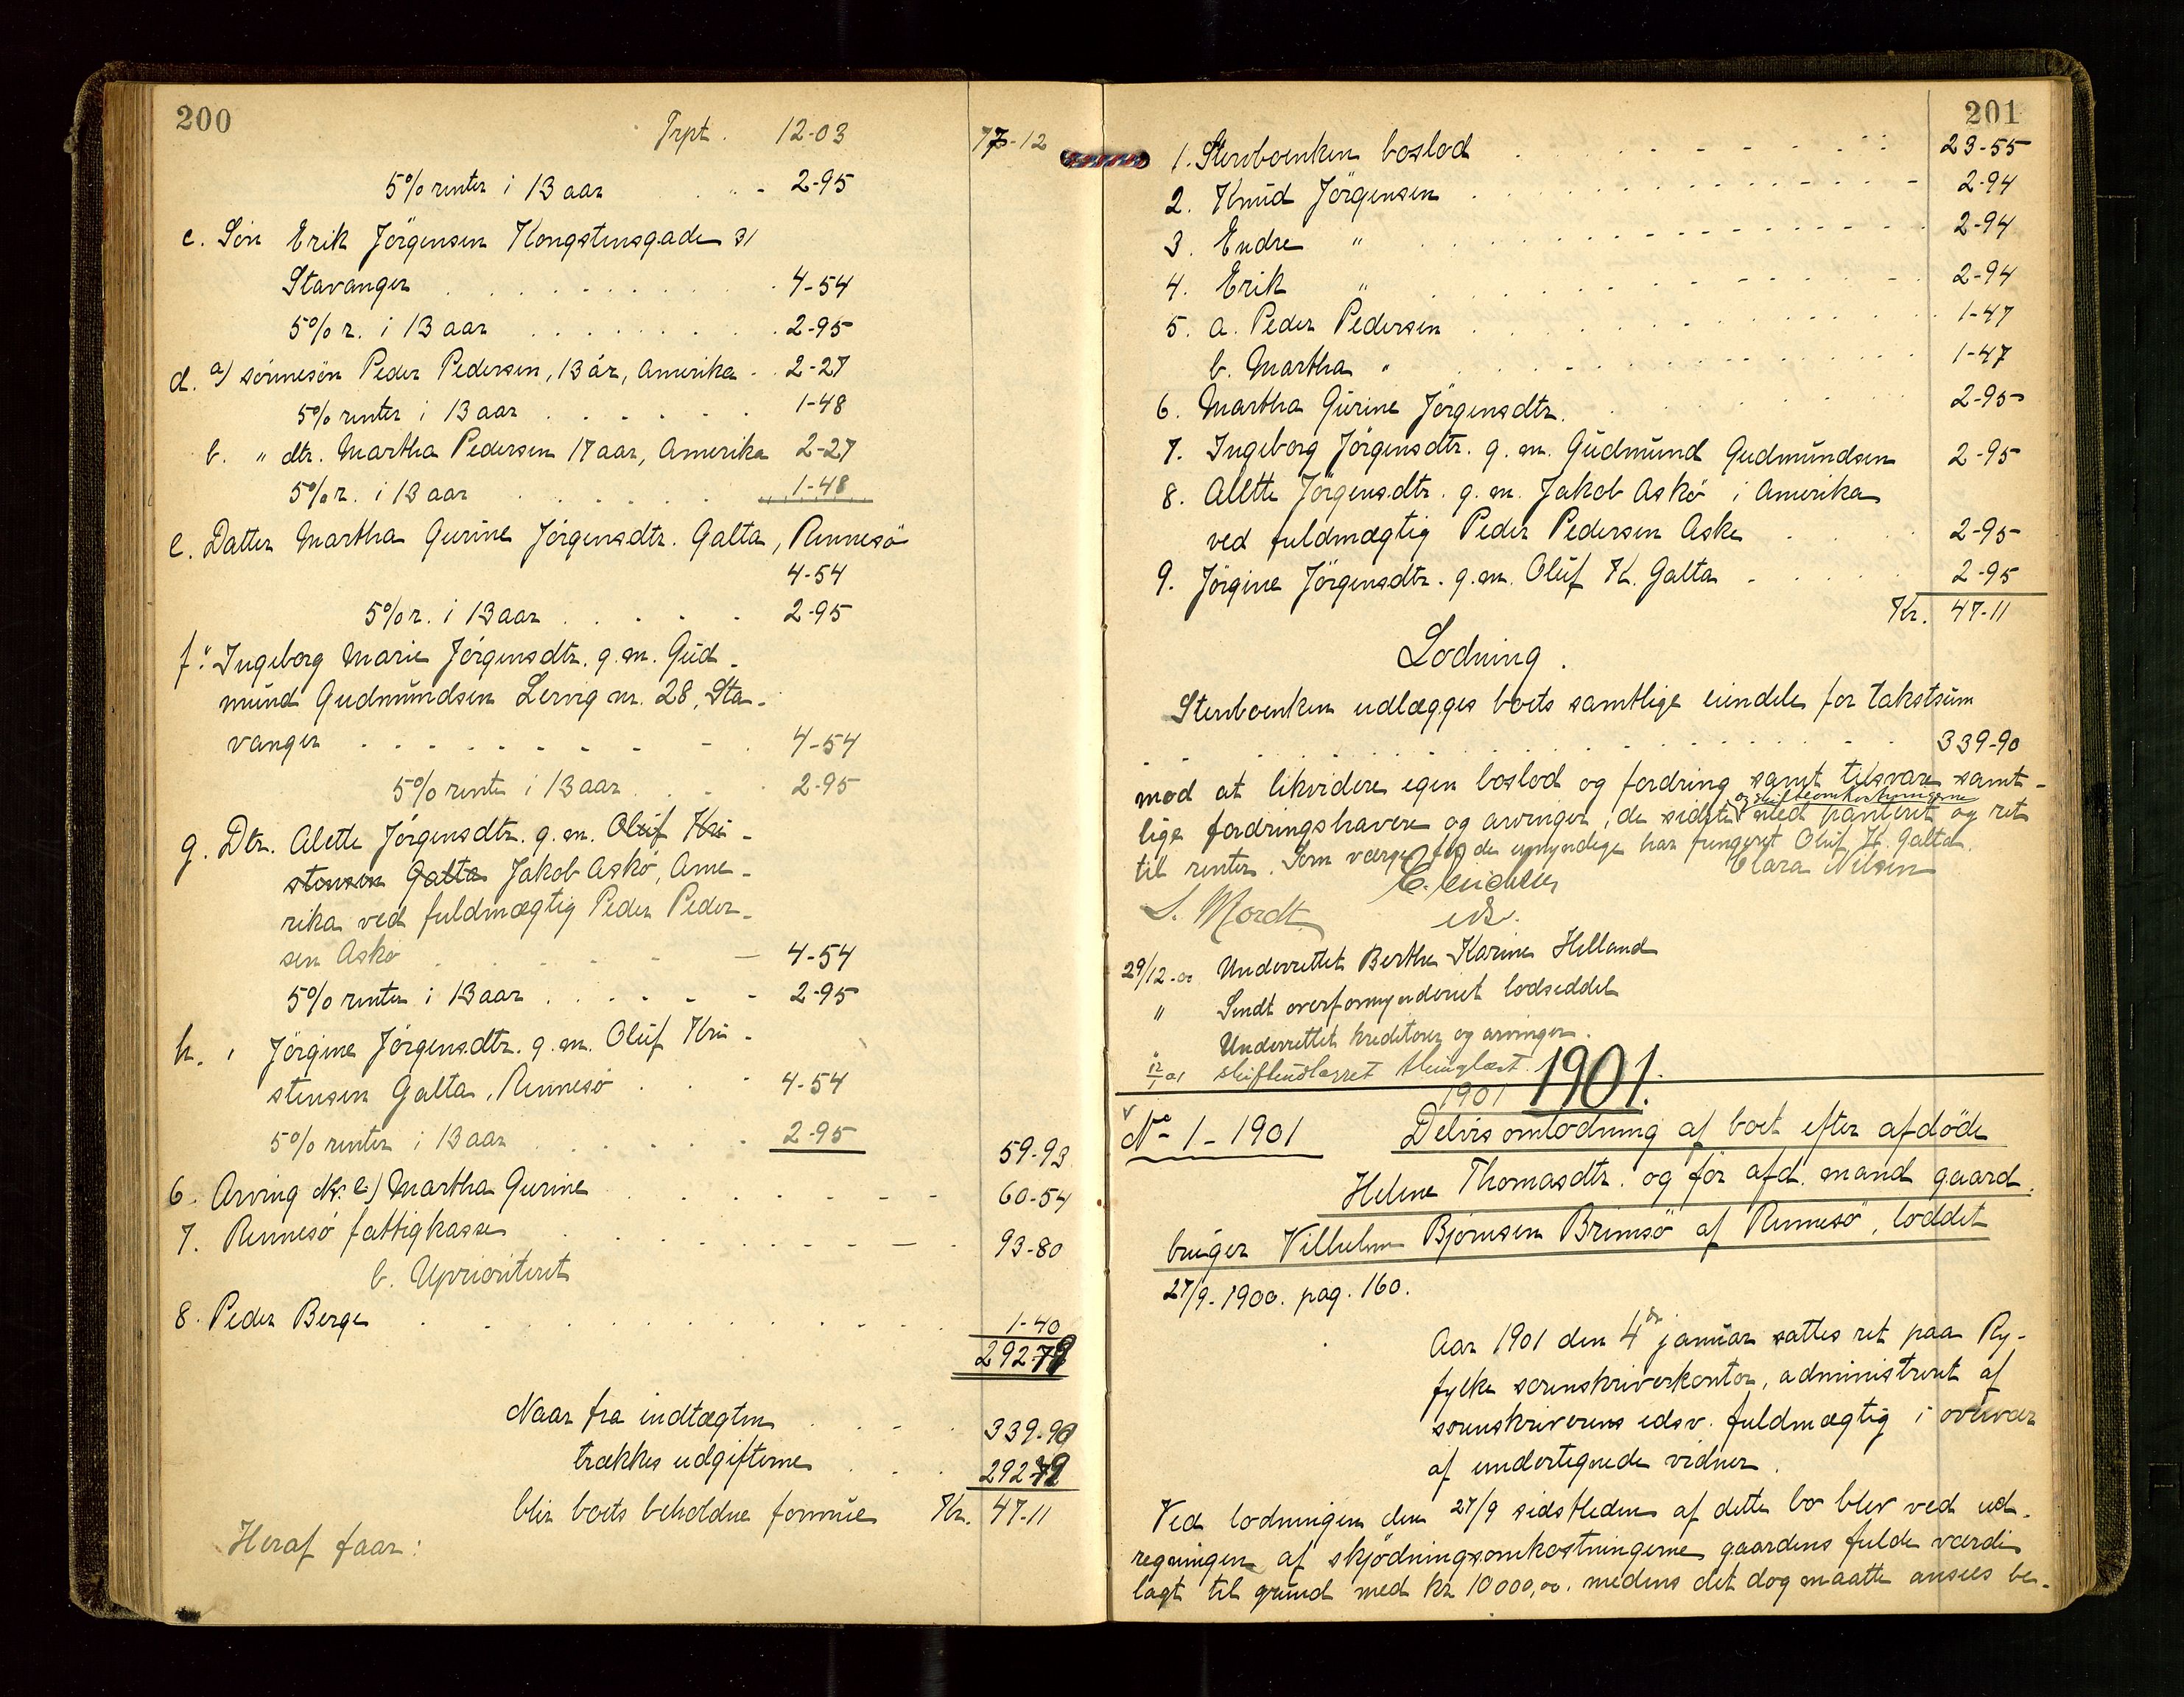 200
Trpt. 12-03 77-12
5% renter i 13 aar . . - 2-95
c. Søn Erik Jörgensen Kongstensgade 31
Stavanger . . . . . . . . 4-54
5% r. i 13 aar . . . . . . . 2-95
d. a) sønnesøn Peder Pedersen, 13 år, Amerika . . 2-27
5% renter i 13 aar . . . . . . 1-48
b. " dtr. Martha Pedersen 17 aar, Amerika 2-27
5% r. i 13 aar . . . . . . 1-48
e. Datter Martha Gurine Jörgensdtr. Galta, Rennesö
4-54
5% r. i 13 aar . . . . . 2-95
f. " Ingeborg Marie Jörgensdtr. g. m. Gud-
mund Gudmundsen Lervig nr. 28, Sta-
vanger . . . . . . . . . 4-54
5% rente i 13 aar . . . 2-95
g. Dtr. Alette Jörgensdtr. g. m. Oluf Kri-
stensen Galta Jakob Askö, Ame-
rika ved fuldmægtig Peder Peder-
sen Askö . . . . . . 4-54
5% renter i 13 aar . . . . . 2-95
h. " Jörgine Jörgensdtr. g. m. Oluf Kri-
stensen Galta, Rennesö . . . 4-54
5% renter i 13 aar . . . . . 2-95 59-93
6. Arving No: e) Martha Gurine . . . . . . . 60-54
7. Rennesö fattigkasse . . . . . . . . 93-80
b. Uprioriteret
8. Peder Berge . . . . . . . . . . 1-40
292-79
Naar fra indtægten . . . . 339-90
trækkes udgifterne . . . 292-79
blir boets beholdne formue Kr. 47-11
Heraf faar:
201
1. Stervboenken boslod . . . . . . . . 23-55
2. Knud Jörgensen . . . . . . . . . . 2-94
3. Endre " . . . . . . . . . . 2-94
4. Erik " . . . . . . . . . . 2-94
5. a. Peder Pedersen . . . . . . . . . 1-47
b. Martha " . . . . . . . . . 1-47
6. Martha Gurine Jörgensdtr. . . . . . . 2-95
7. Ingeborg Jörgensdtr. g. m. Gudmund Gudmundsen 2-95
8. Alette Jörgensdtr. g. m. Jakob Askö i Amerika
ved fuldmægtig Peder Pedersen Aske . . . . 2-95
9. Jörgine Jörgensdtr. g. m. Oluf K. Galta . . . . . 2-95
Kr. 47-11
Lodning.
Stervboenken udlægges boets samtlige eiendele for takstsum
. . . . . . . . . . . . 339-90
mod at likvidere egen boslod og fordring samt tilsvare samt-
og skifteomkostningerne
lige fordringshavere og arvinger, de sidste med panteret og ret
til renter. Som værge for de umyndige har fungeret Oluf K. Galta.
Clara Nilsen
S. Mordt edsv.
29/12-00 Underrettet Berthe Karine Helland
" Sendt overformynderiet lodseddel
" Underrettet kreditorer og arvinger.
12/1 01 skifteudlægget thinglæst.
1901 1901.
No 1 - 1901 Delvis omlodning af boet efter afdöde
Helene Thomasdtr. og før afd. mand gaard-
bruger Vilhelm Björnsen Brimsö af Rennesö, loddet
27/9-1900. pag. 160.
Aar 1901 den 4de januar sattes ret paa Ry-
fylke sorenskriverkontor, administreret af
sorenskriverens edsv. fuldmægtig i overvær
af undertegnede vidner.
Ved lodningen den 27/9 sidstleden af dette bo blev ved ud-
regningen af skjödningsomkostningerne gaardens fulde værdi
lagt til grund med kr 10000,00. medens det dog maatte ansees be-